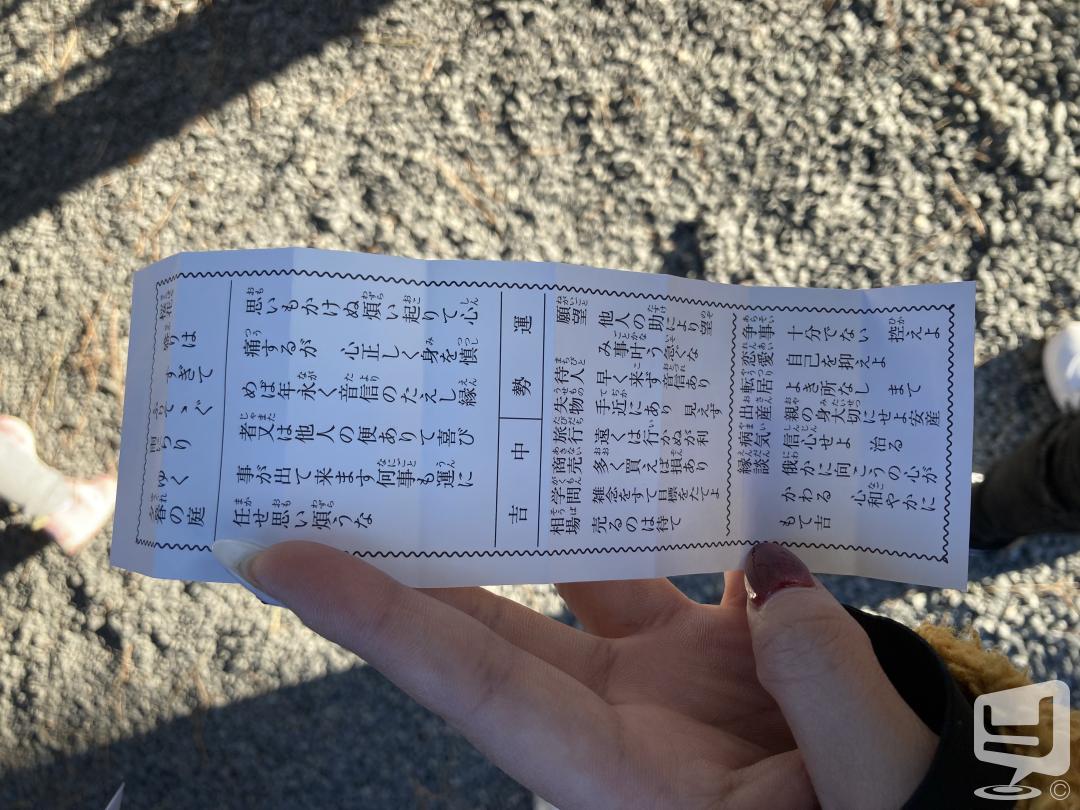 思いもかけぬ煩い起りて心
痛するが 心正しく身を慎
めば年永く音信のたえし縁
者又は他人の便ありて喜び
事が出て来ます何事も運に
任せ思い煩うな
運勢 中吉
願望 他人の助により望み事叶う急ぐな
待人 早く来ず音信あり
失物 手近にあり 見えず
旅行 遠くは行かぬが利
商売 多く買えば損あり
学問 雑念をすて目標をたてよ
相場 売るのは待て
争事 十分でない 控えよ
恋愛 自己を抑えよ
転居 よき所なし まて
出産 親の身大切にせよ安産
病気 信心せよ 治る
縁談 俄かに向こうの心がかわる 心和やかにもて吉